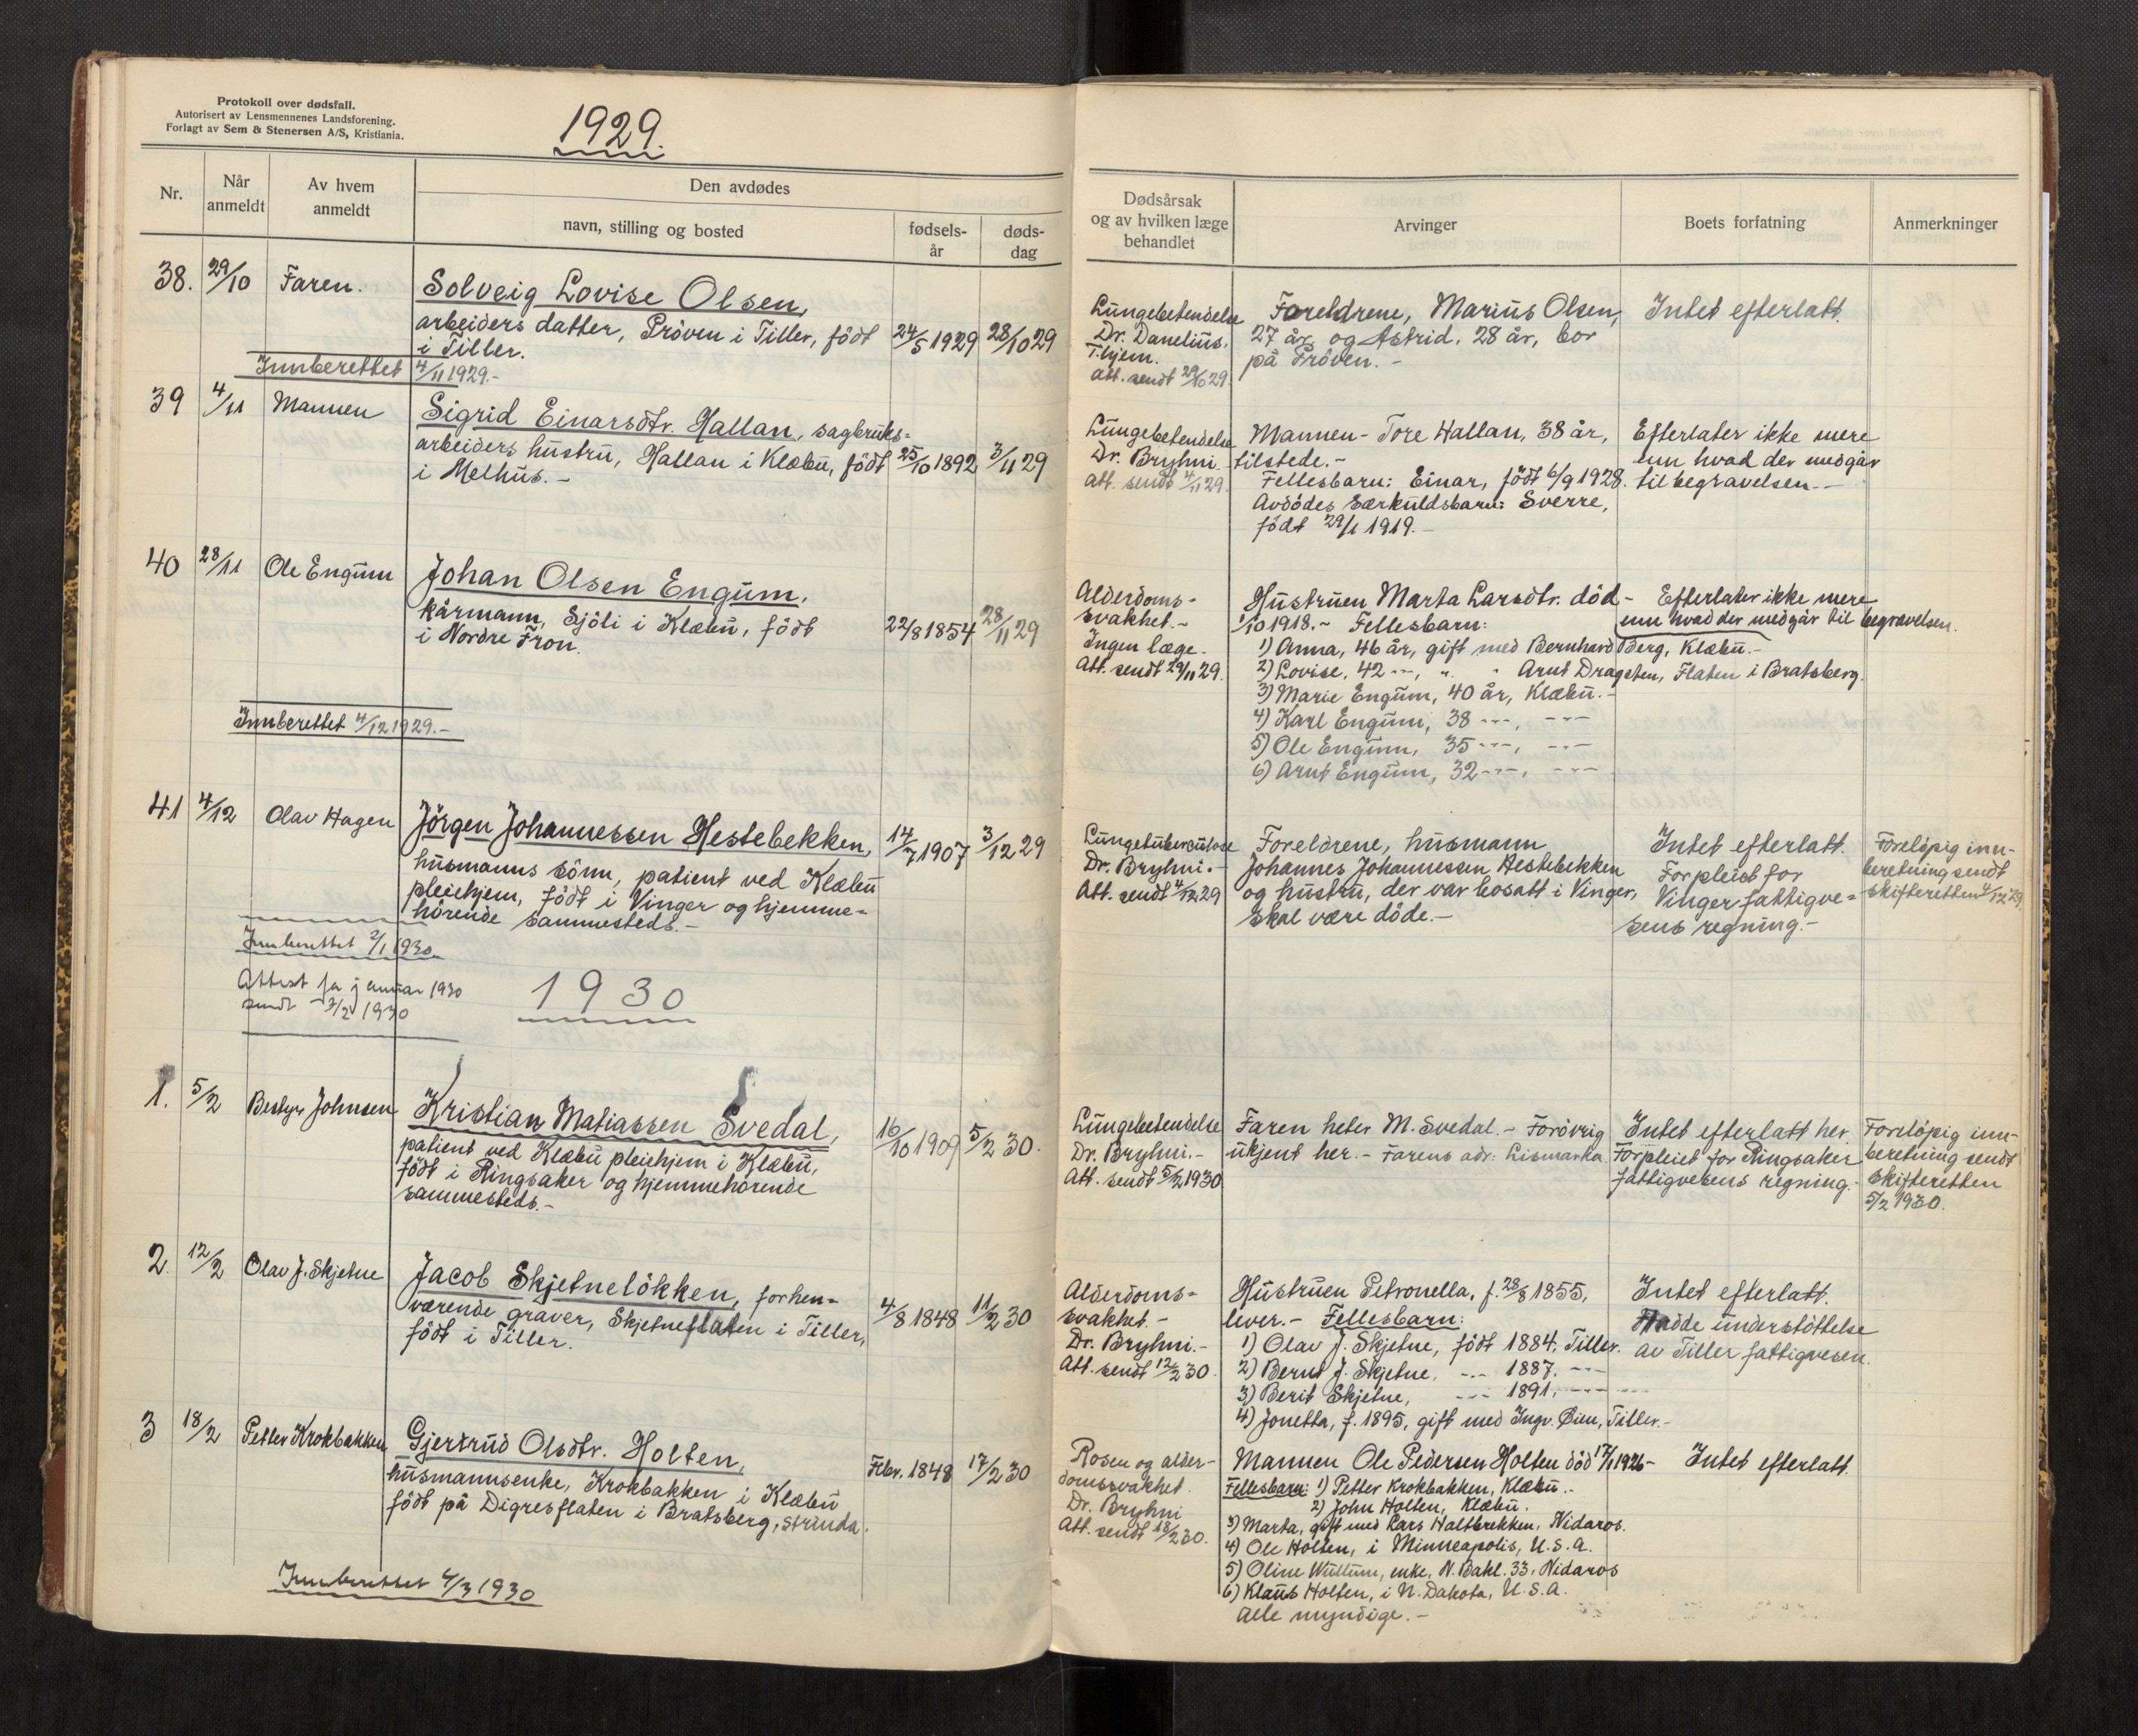 Protokoll over dødsfall.
Autorisert av Lensmennenes Landsforening.
Forlagt av Sem & Stenersen A/S, Kristiania.
1929.
Nr.
Når anmeldt
Av hvem anmeldt
Den avdødes
navn, stilling og bosted
fødsels-år
døds-dag
38. 29/10 Faren. Solveig Lovise Olsen,
arbeiders datter, Pröven i Tiller, födt 24/5 1929 28/10 29
i Tiller.
Innberettet 4/11 1929.-
39 4/11 Mannen Sigrid Einarsdtr. Hallan, sagbruks-
arbeiders hustru, Hallan i Klæbu, födt 25/10 1892 3/11 29
i Melhus.-
40 28/11 Ole Engum Johan Olsen Engum,
kårmann, Sjöli i Klæbu, födt 22/8 1854 28/11 29
i Nordre Fron.
Innberettet 4/12 1929.-
41 4/12 Olav Hagen Jörgen Johannessen Hestebekken, 14/7 1907 3/12 29
husmanns sönn, patient ved Klæbu
pleiehjem, födt i Vinger og hjemme-
hörende sammesteds.-
Innberettet 2/1 1930.
Attest for januar 1930
sendt 3/2 1930
1930
1. 5/2 Bestyr Johnsen Kristian Matiassen Svedal, 16/10 1909 5/2 30.
patient ved Klæbu pleiehjem i Klæbu,
födt i Ringsaker og hjemmehörende
sammesteds.-
2. 12/2 Olav J. Skjetne Jacob Skjetnelökken, forhen-
værende graver, Skjetneflaten i Tiller, 4/8 1848 11/2 30
födt i Tiller.
3 18/2 Petter Krokbakken Gjertrud Olsdtr. Holten, Febr. 1848 17/2 30
husmannsenke, Krokbakken i Klæbu
födt på Digresflaten i Bratsberg, Strinda.
Innberettet 4/3 1930
Dødsårsak
og av hvilken læge
behandlet
Arvinger
Boets forfatning
Anmerkninger
Lungebetendelse Foreldrene, Marius Olsen, Intet efterlatt.
Dr. Danelius. 27 år og Astrid, 28 år, bor
T.hjem. på Pröven.-
Att. sendt 29/10 29.
Lungebetendelse Mannen - Tore Hallan, 38 år, Efterlater ikke mere
Dr. Bryhni. tilstede.- enn hvad der medgår
Att. sendt 4/11 29. Fellesbarn: Einar, födt 6/9 1928. til begravelsen.-
Avdödes særkuldsbarn: Sverre,
födt 29/1 1919.-
Alderdoms- Hustruen Marta Larsdtr. död - Efterlater ikke mere
svakhet.- 1/10 1918.- Fellesbarn: enn hvad der medgår til begravelsen.
Ingen læge. 1) Anna, 46 år, gift med Bernhard Berg, Klæbu.-
Att. sendt 29/11 29. 2) Lovise, 42 --, " " Arnt Dragsten, Flaten i Bratsberg.
3) Marie Engum, 40 år, Klæbu.-
4) Karl Engum, 38 ---, ---
5) Ole Engum, 35 ---, ---
6) Arnt Engum, 32 ---, ---
Lungetuberculose Foreldrene, husmann Intet efterlatt. Forelöpig inn-
Dr. Bryhni.- Johannes Johannessen Hestebekken Forpleiet for beretning sendt
Att. sendt 4/12 29 og hustru, der var bosatt i Vinger, Vinger fattigve- skifteretten 4/12 29
skal være döde.- sens regning.-
Lungebetendelse Faren heter M. Svedal.- Forövrig Intet efterlatt her. Forelöpig inn-
Dr. Bryhni.- ukjent her.- Farens adr: Lismarka Forpleiet for Ringsaker beretning sendt
Att. sendt 5/2 1930 fattigvesens regning.- skifteretten
5/2 1930.
Alderdoms- Hustruen Petronella, f. 28/8 1855, Intet efterlatt.
svakhet.- lever.- Fellesbarn: Hadde understöttelse
Dr. Bryhni.- 1) Olav J. Skjetne, födt 1884, Tiller. av Tiller fattigvesen.
Att. sendt 12/2 30. 2) Bernt J. Skjetne, --- 1887. ---
3) Berit Skjetne, --- 1891. ---
4) Jonetta, f. 1895, gift med Ingv. Öien, Tiller.-
Rosen og alder- Mannen Ole Pedersen Holten död 17/1 1926 - Intet efterlatt.
domssvakhet. Fellesbarn: 1) Petter Krokbakken, Klæbu.-
Dr. Bryhni 2) John Holten, Klæbu.
Att. sendt 18/2 30. 3) Marta, gift med Lars Haltbrekken, Nidaros.
4) Ole Holten, i Minneapolis, U.S.A.
5) Oline Wullum, enke, N. Bakl. 33, Nidaros
6) Klaus Holten, i N. Dakota, U.S.A.
Alle myndige.-